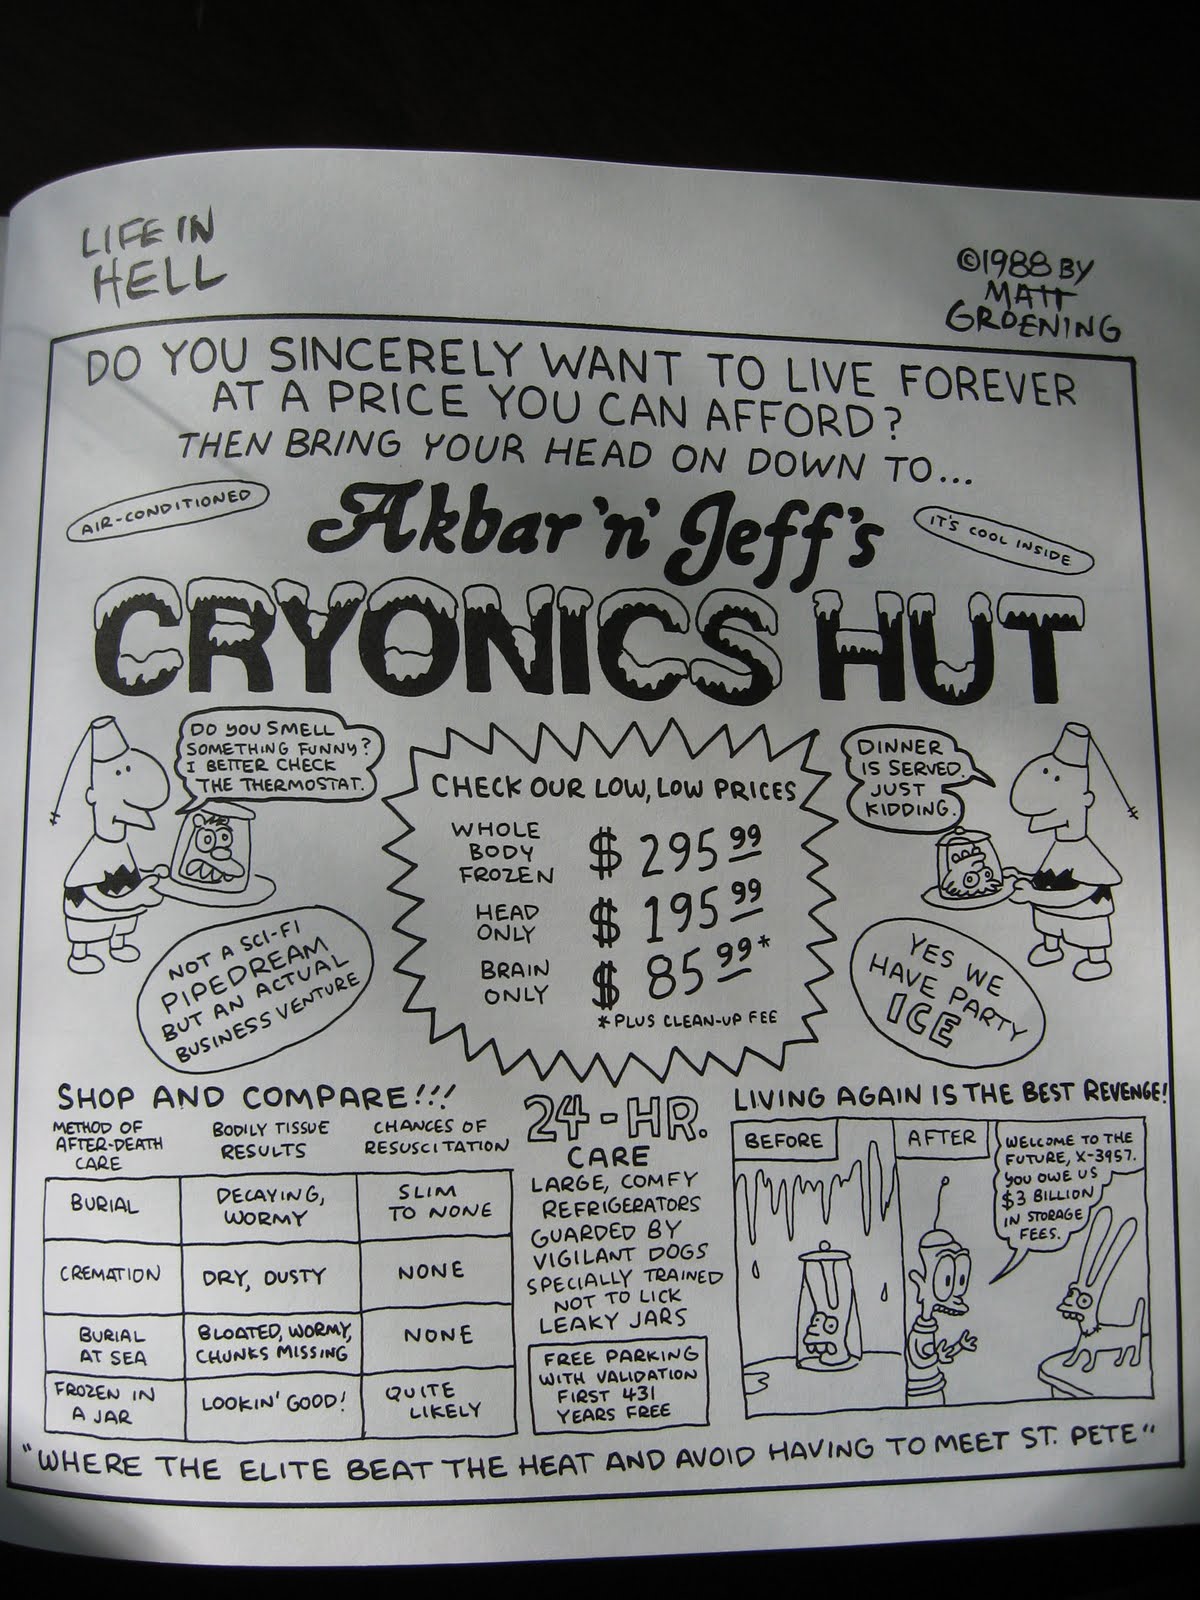 LIFE IN
HELL
©1988 BY
MATT
GROENING
DO YOU SINCERELY WANT TO LIVE FOREVER
AT A PRICE YOU CAN AFFORD?
THEN BRING YOUR HEAD ON DOWN TO...
AIR-CONDITIONED
Akbar 'n' Jeff's
IT'S COOL INSIDE
CRYONICS HUT
DO YOU SMELL
SOMETHING FUNNY?
I BETTER CHECK
THE THERMOSTAT.
DINNER
IS SERVED.
JUST
KIDDING.
CHECK OUR LOW, LOW PRICES
WHOLE
BODY
FROZEN
$ 295 99
HEAD
ONLY
$ 195 99
BRAIN
ONLY
$ 85 99*
*PLUS CLEAN-UP FEE
NOT A SCI-FI
PIPEDREAM
BUT AN ACTUAL
BUSINESS VENTURE
YES WE
HAVE PARTY
ICE
SHOP AND COMPARE!!!
METHOD OF
AFTER-DEATH
CARE
BODILY TISSUE
RESULTS
CHANCES OF
RESUSCITATION
BURIAL
DECAYING,
WORMY
SLIM
TO NONE
CREMATION
DRY, DUSTY
NONE
BURIAL
AT SEA
BLOATED, WORMY,
CHUNKS MISSING
NONE
FROZEN IN
A JAR
LOOKIN' GOOD!
QUITE
LIKELY
24-HR.
CARE
LARGE, COMFY
REFRIGERATORS
GUARDED BY
VIGILANT DOGS
SPECIALLY TRAINED
NOT TO LICK
LEAKY JARS
FREE PARKING
WITH VALIDATION
FIRST 431
YEARS FREE
LIVING AGAIN IS THE BEST REVENGE!
BEFORE
AFTER
WELCOME TO THE
FUTURE, X-3957.
YOU OWE US
$3 BILLION
IN STORAGE
FEES.
"WHERE THE ELITE BEAT THE HEAT AND AVOID HAVING TO MEET ST. PETE"